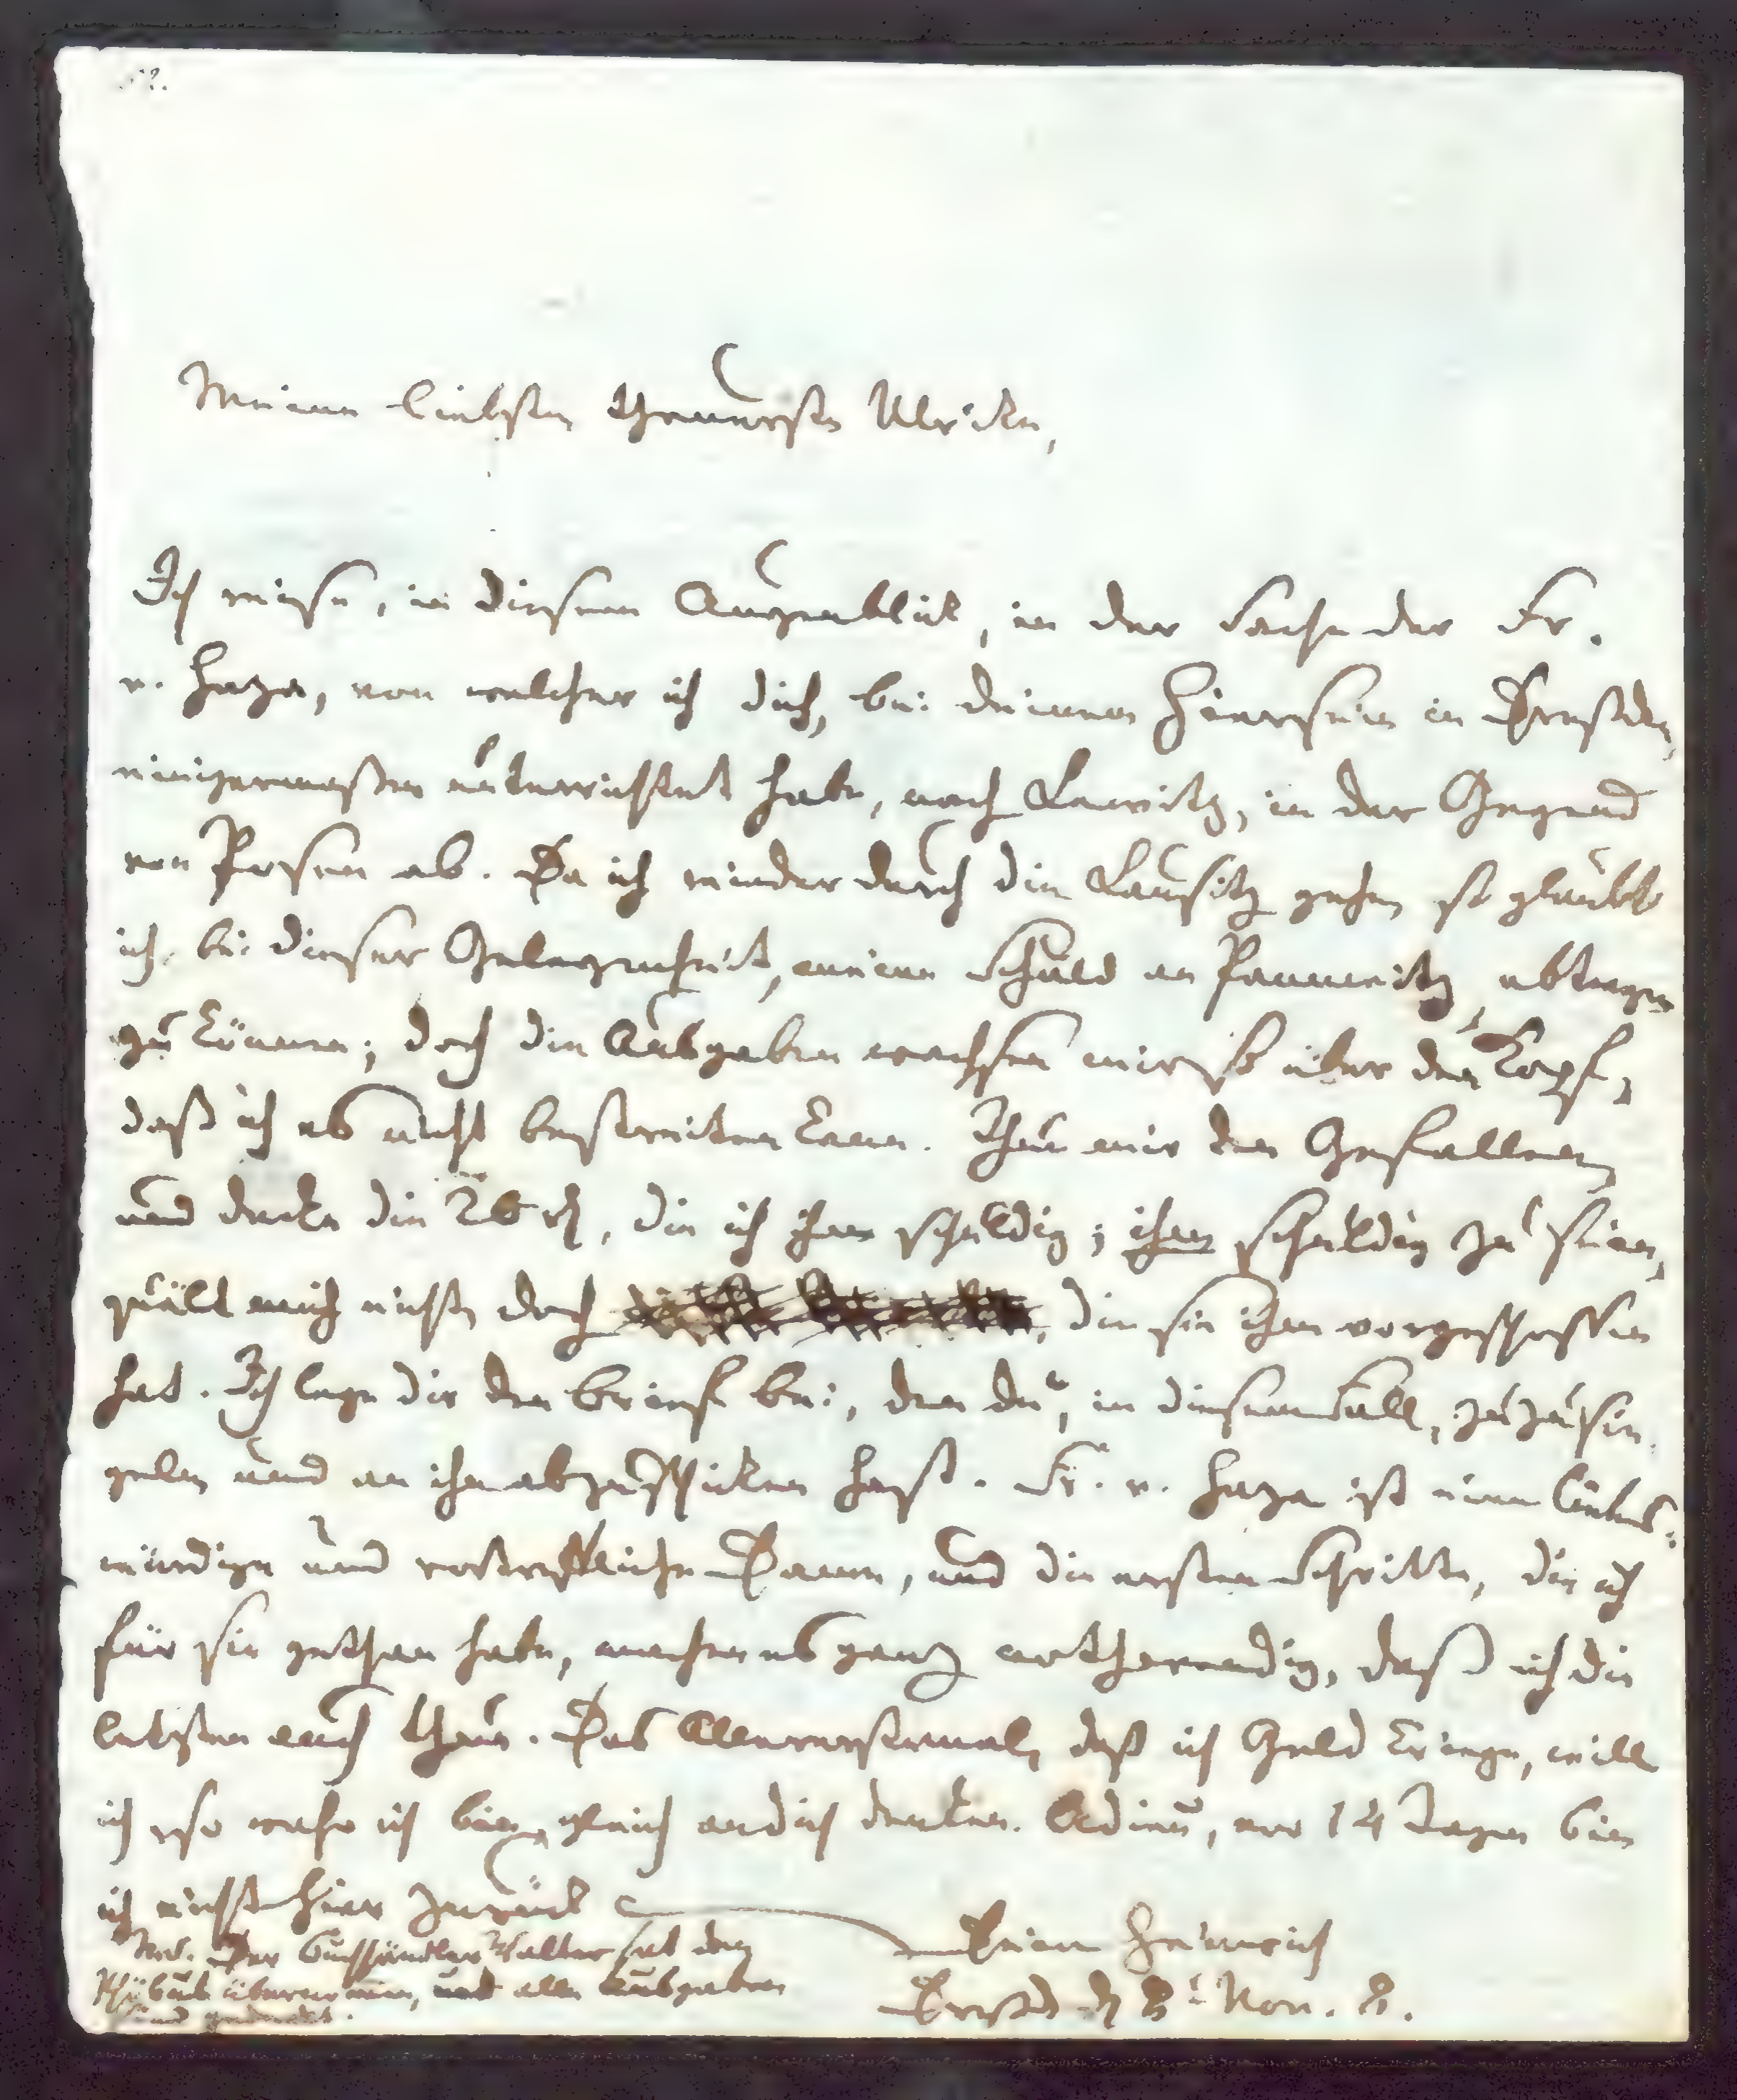 Meine liebste theuerste Ulrike,
Ich reise, in diesem Augenblick, in der Sache der Fr.
v. Haza, von welcher ich dich, bei deinem Hiersein in Dreßden,
einigermaßen unterrichtet habe, nach Lewitz, in der Gegend
von Posen ab. Da ich wieder durch die Lausitz gehe, so glaubte
ich, bei dieser Gelegenheit, meine Schuld an Pannwitz abtragen
zu können; doch die Ausgaben wachsen mir so über den Kopf,
daß ich es nicht bestreiten kann. Thue mir den Gefallen,
und decke die 26 rh, die ich ihm schuldig; ihm schuldig zu sein,
quält mich nicht, doch die sie ihm vorgeschossen
hat. Ich lege dir den Brief bei, den du, in diesem Fall, zuzusie-
geln und an ihn abzuschicken hast. Fr. v. Haza ist eine liebens-
würdige und vortreffliche Dame, und die ersten Schritte, die ich
für sie gethan habe, machen es ganz nothwendig, daß ich die
letzten auch thue. Das Allererstemal, daß ich Geld kriege, will
ich, so wahr ich bin, gleich an dich denken. Adieu, vor 14 Tagen bin
ich nicht hier zurück
Dein Heinrich
Dresd d 2t Nov. 8.
Der Buchhändler Walther hat den
Phöbus übernommen, und alle Ausgaben
sind gedeckt.